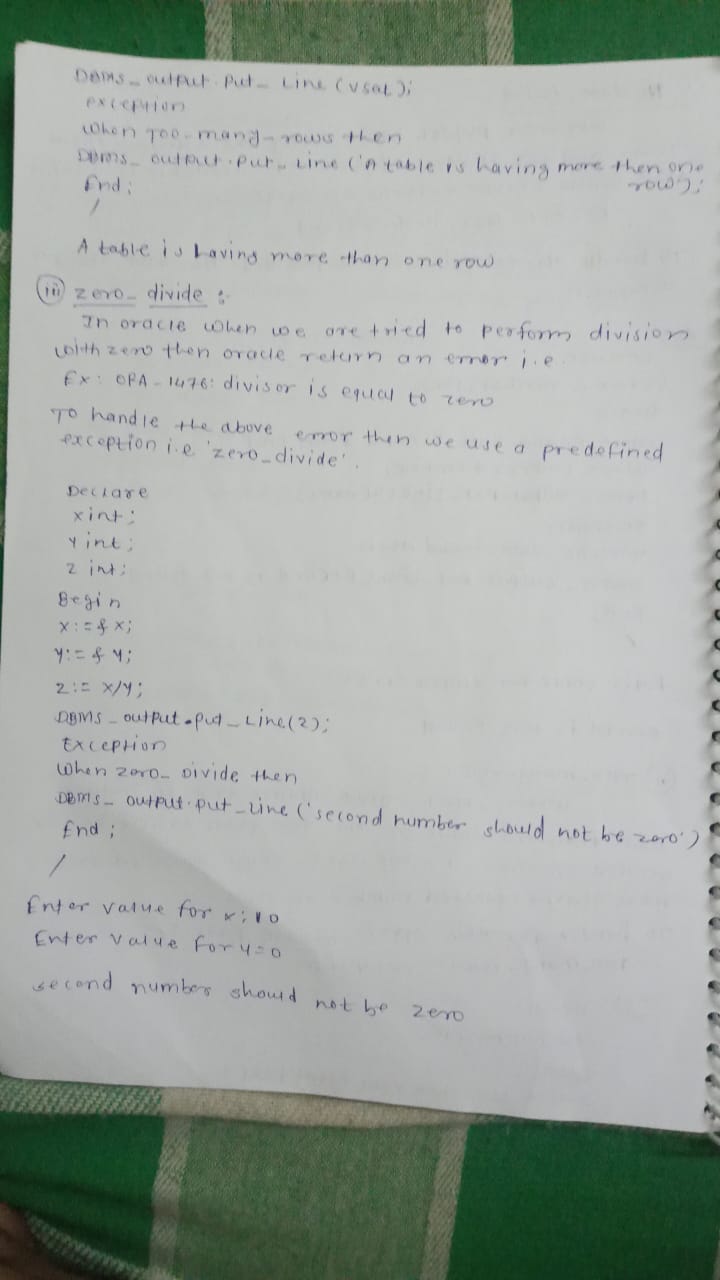 DBMS_output.put_Line(vsal);
exception
when Too_many_rows then
DBMS_output.put_Line('A table is having more then one
row');
End;
/
A table is having more than one row
(iii) zero_divide :-
In oracle when we are tried to perform division
with zero then oracle return an error i.e.
Ex: ORA-1476: divisor is equal to zero
To handle the above error then we use a predefined
exception i.e 'zero_divide'.
Declare
x int;
y int;
z int;
Begin
x:=&x;
y:=&y;
z:= x/y;
DBMS_output.put_Line(z);
Exception
when zero_Divide then
DBMS_output.put_Line('second number should not be zero')
End;
/
Enter value for x:10
Enter value for y=0
second number should not be zero